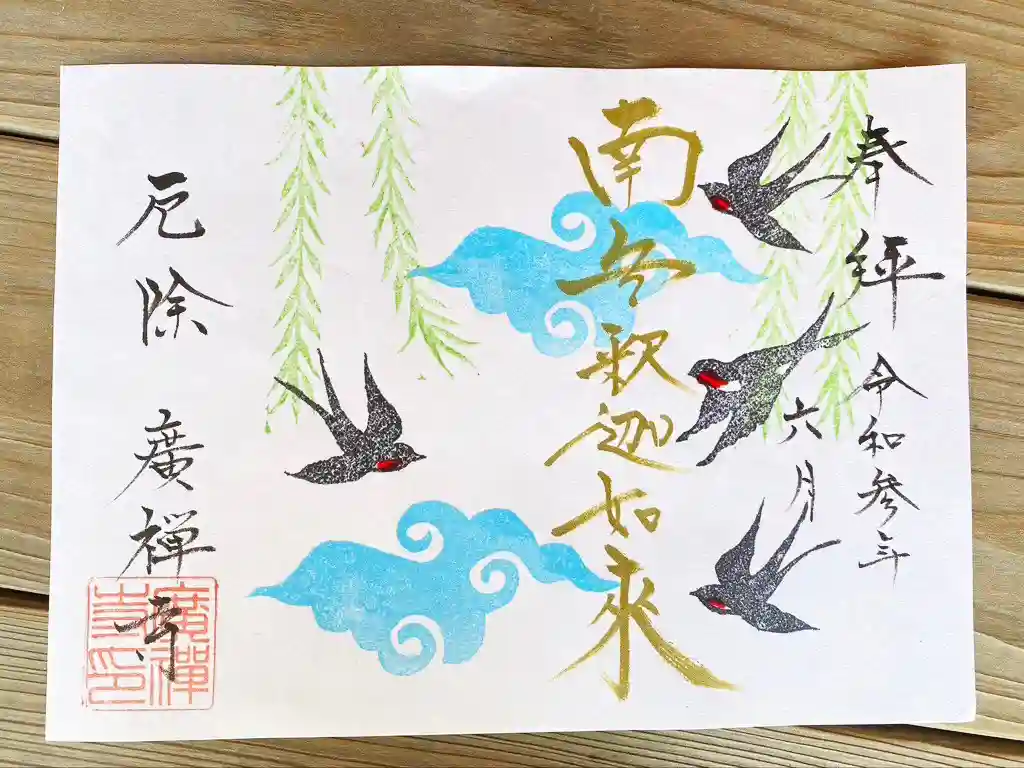 奉拝 令和参年
六月
南无釈迦如来
厄除 廣禅寺
廣禅寺印